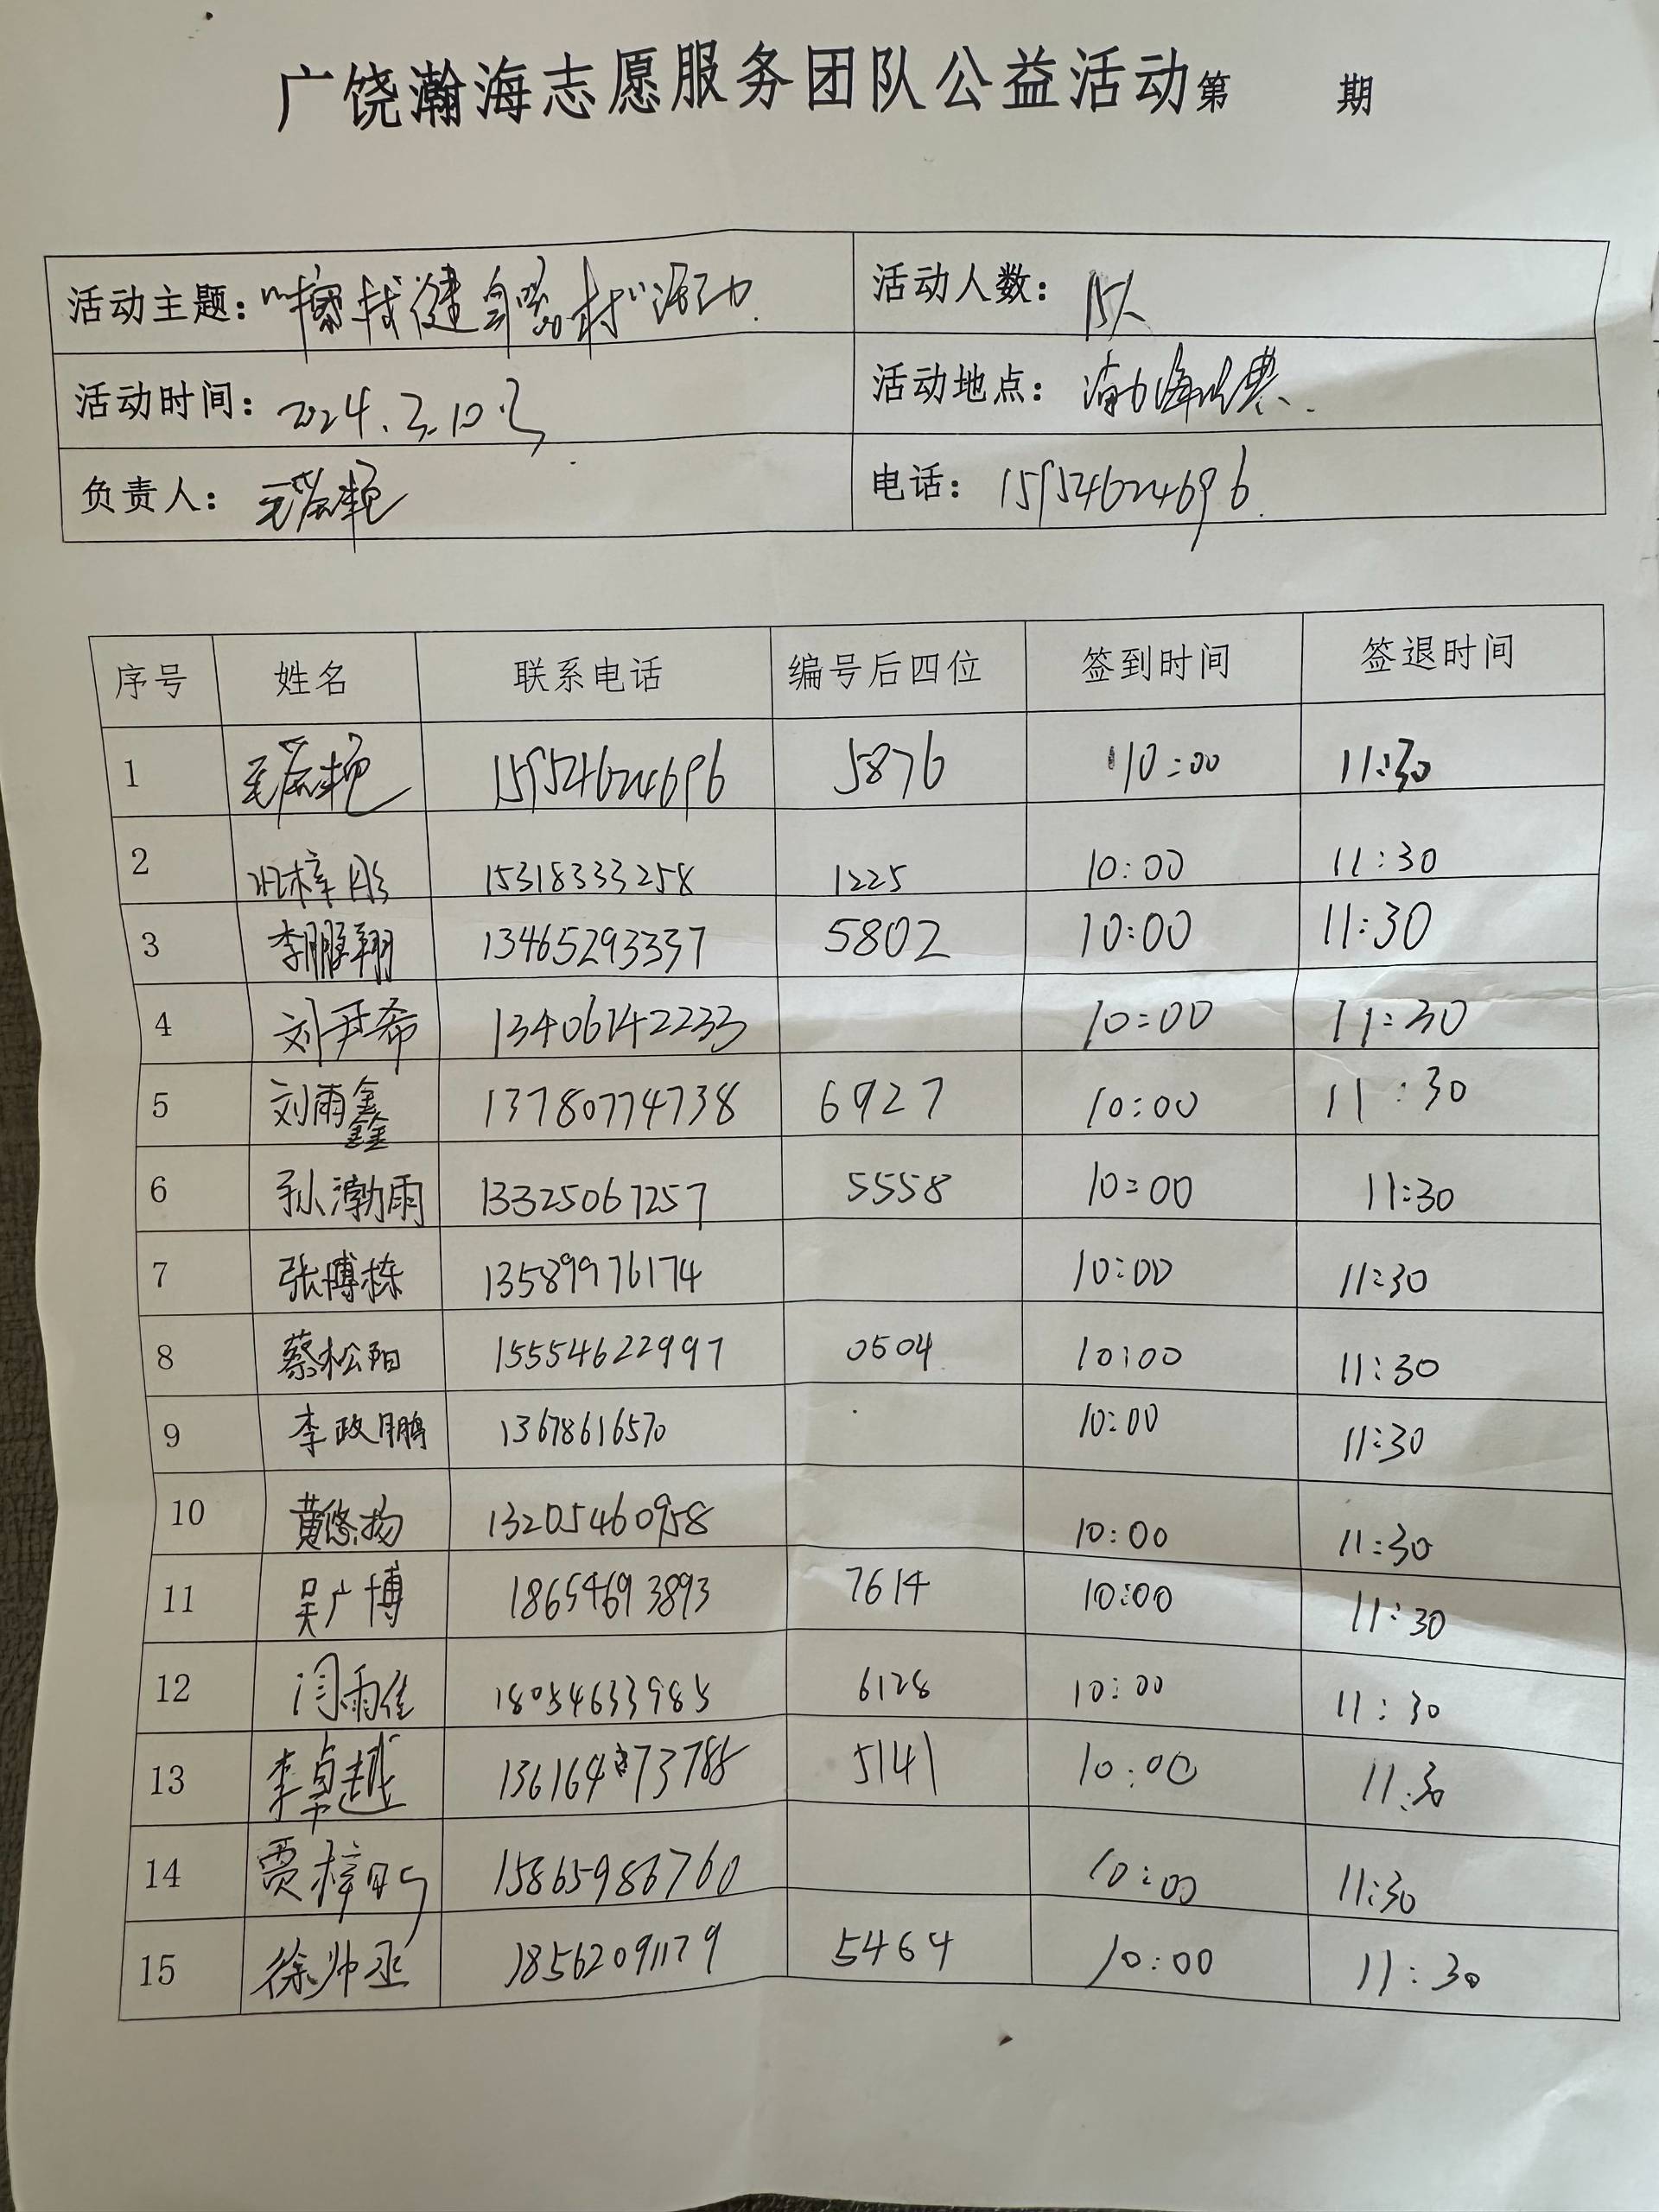 广饶瀚海志愿服务团队公益活动第 期
活动主题：“擦拭健身器材”活动. 活动人数：15人
活动时间：2024.3.10日 活动地点：渤海
负责人： 电话：15954624696.
序号 姓名 联系电话 编号后四位 签到时间 签退时间
1 15954624696 5876 10:00 11:30
2 梓彤 15318333258 1225 10:00 11:30
3 李鹏翔 13465293337 5802 10:00 11:30
4 刘尹希 13406142233 10:00 11:30
5 刘雨鑫鑫 13780774738 6927 10:00 11:30
6 孙渤雨 13325067257 5558 10:00 11:30
7 张博栋 13589976174 10:00 11:30
8 蔡松阳 15554622997 0504 10:00 11:30
9 李政鹏 13678616570 10:00 11:30
10 黄悠扬 13205460958 10:00 11:30
11 吴广博 18654693893 7614 10:00 11:30
12 闫雨佳 18054633985 6128 10:00 11:30
13 李卓越 13616473785 5141 10:00 11:30
14 贾梓 15865986760 10:00 11:30
15 徐帅丞 18562091179 5464 10:00 11:30